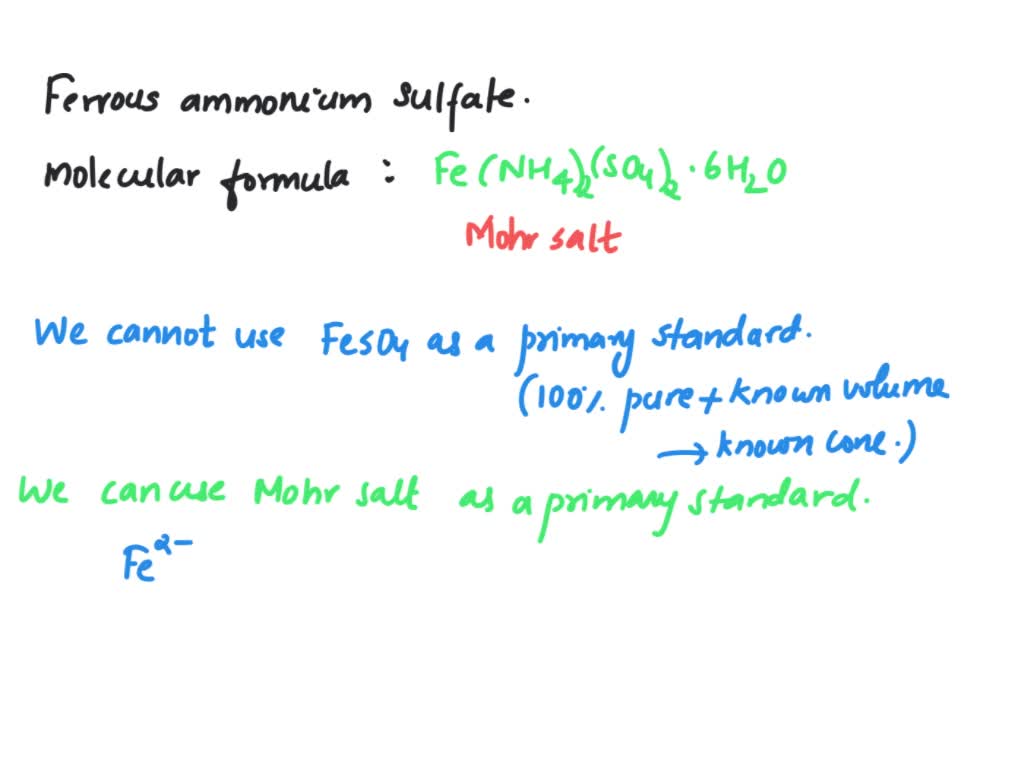 Ferrous ammonium sulfate.
Molecular formula : Fe(NH4)2(SO4)2 · 6H2O
Mohr salt
We cannot use FeSO4 as a primary standard.
(100% pure + known volume
→ known conc.)
We can use Mohr salt as a primary standard.
Fe2-